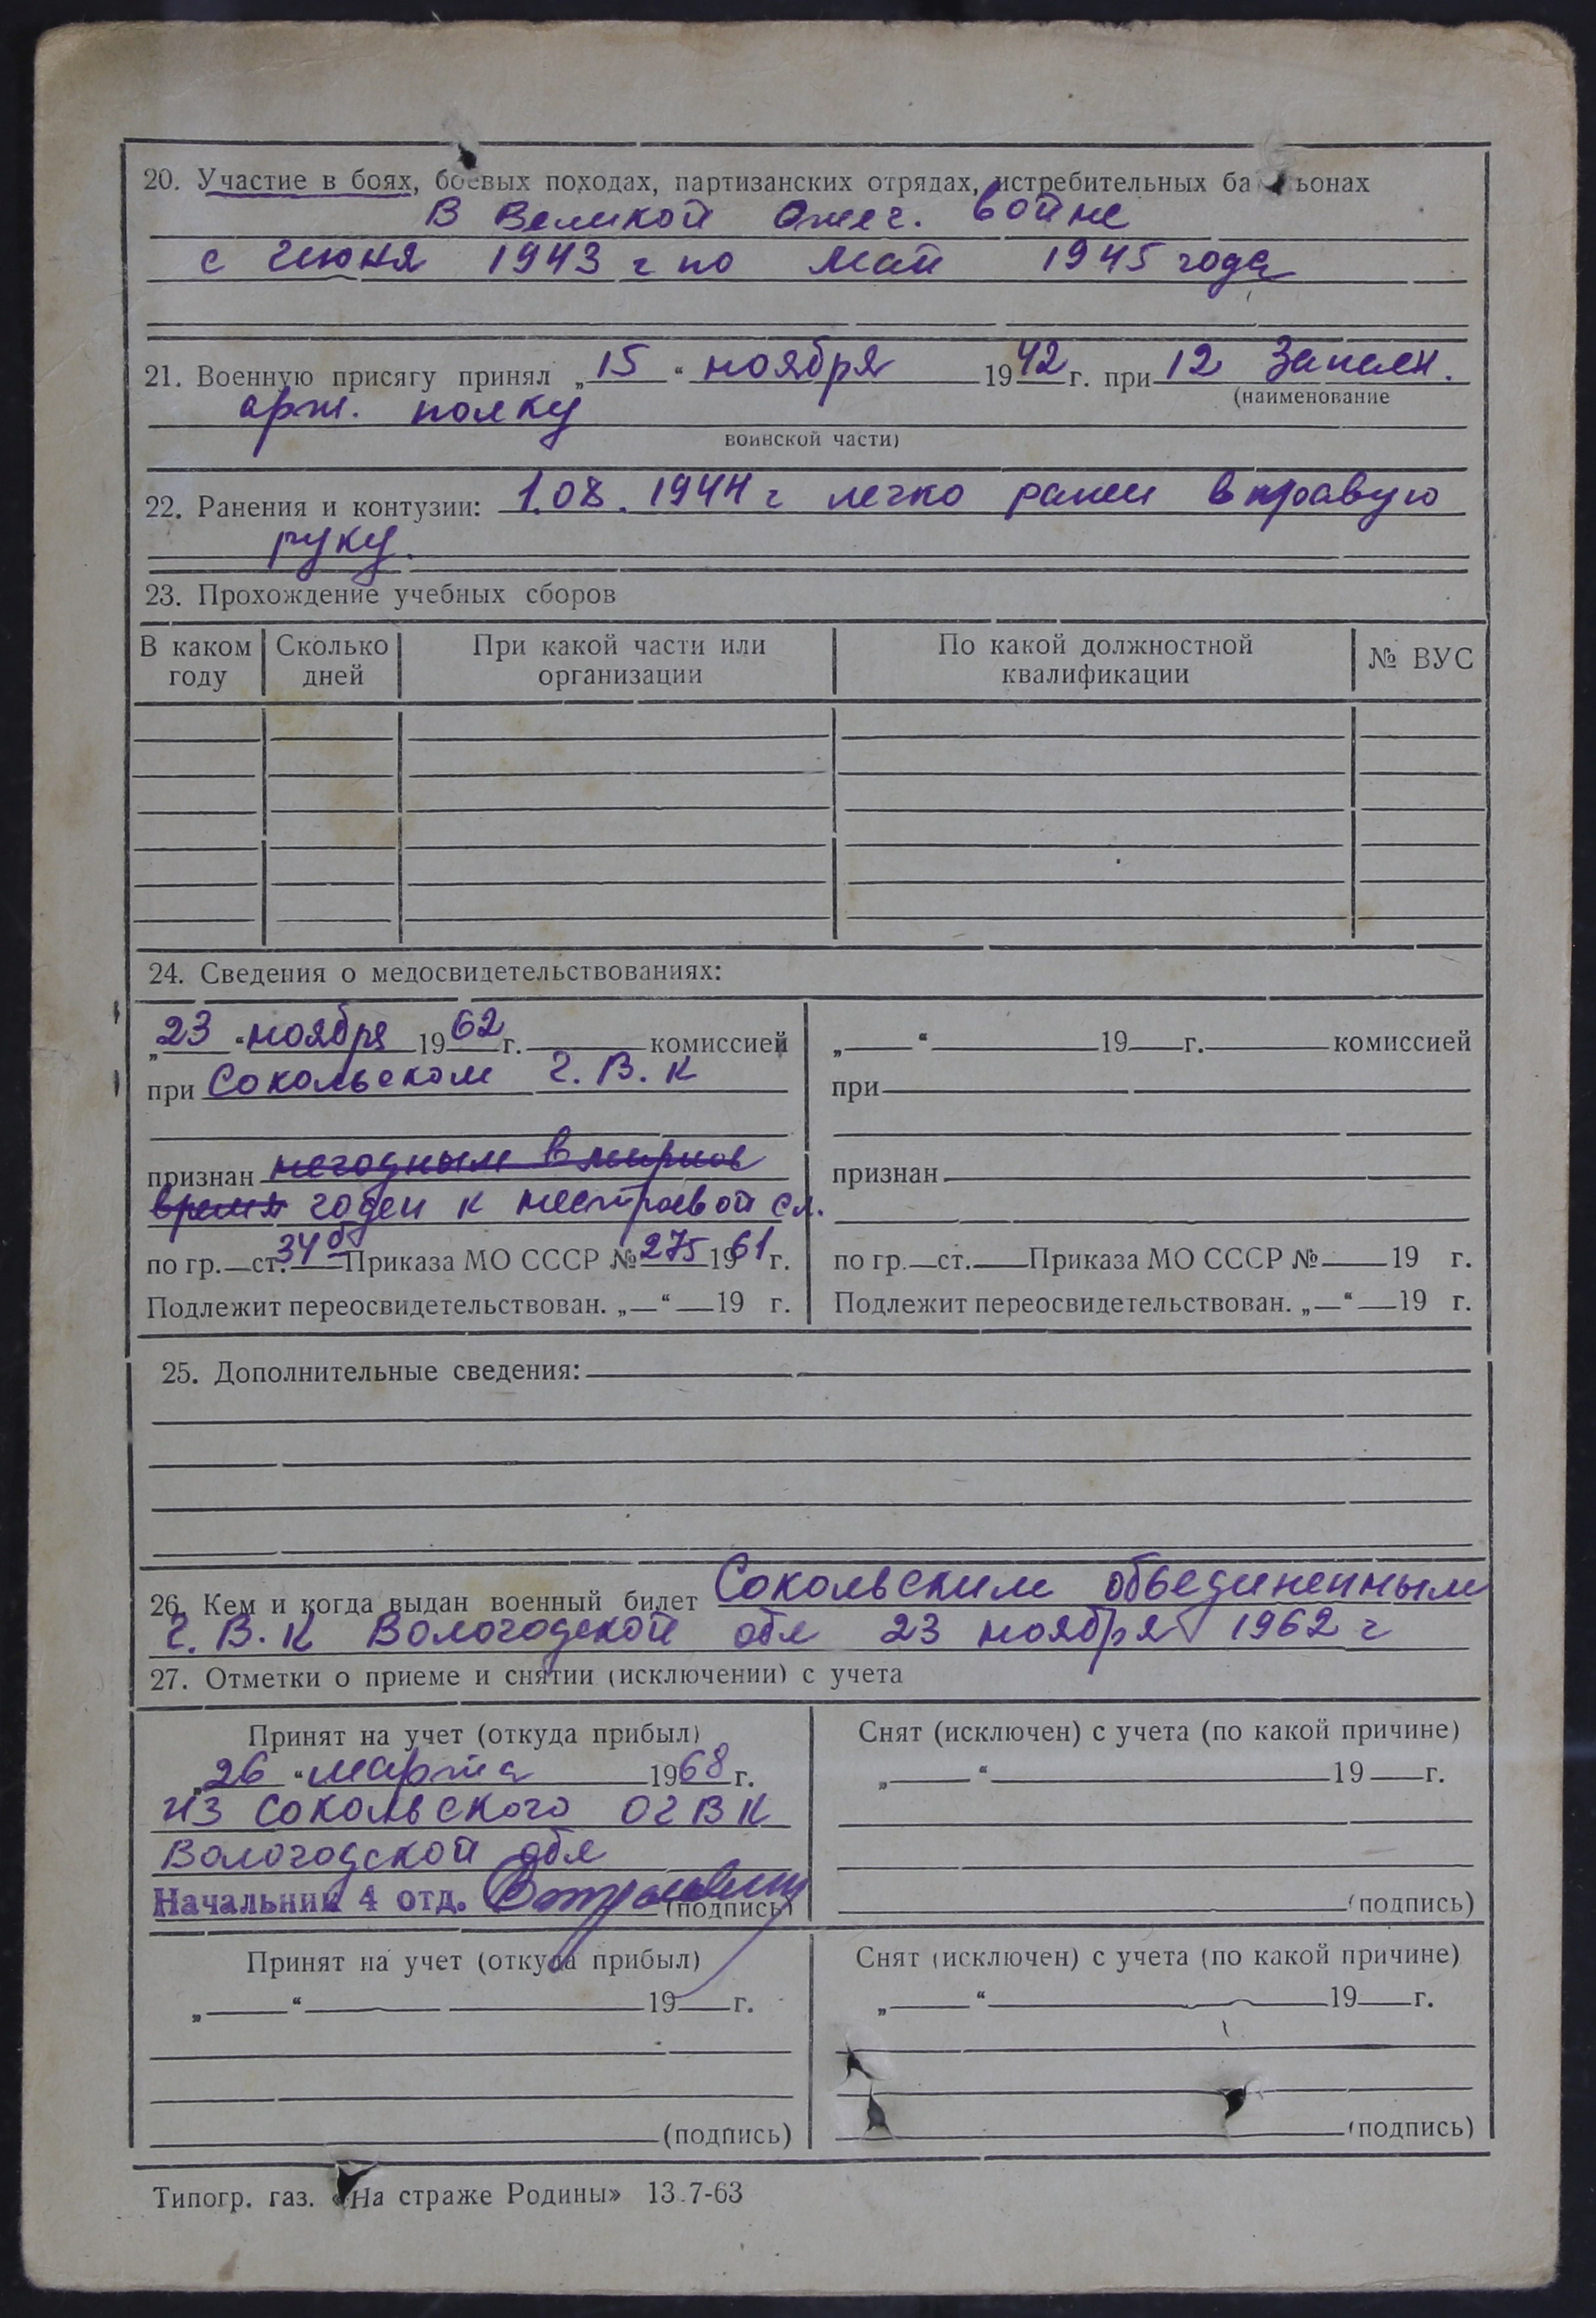 20. Участие в боях, боевых походах, партизанских отрядах, истребительных ба ьонах
В Великой Отеч. войне
с июня 1943 г по май 1945 года
21. Военную присягу принял „15“ ноября 1942 г. при 12 Запасн.
(наименование
арт. полку
воинской части)
22. Ранения и контузии: 1.08.1944 г легко ранен в правую
руку.
23. Прохождение учебных сборов
В каком году Сколько дней При какой части или организации По какой должностной квалификации № ВУС
24. Сведения о медосвидетельствованиях:
„23“ ноября 1962 г. комиссией
при Сокольском г.В.К
признан негодным в мирное
время годен к нестроевой сл.
по гр. ст. 34б Приказа МО СССР № 275 1961 г.
Подлежит переосвидетельствован. „ “ 19 г.
„ “ 19 г. комиссией
при
признан
по гр. ст. Приказа МО СССР № 19 г.
Подлежит переосвидетельствован. „ “ 19 г.
25. Дополнительные сведения:
26. Кем и когда выдан военный билет Сокольским объединенным
г.В.К Вологодской обл 23 ноября 1962 г
27. Отметки о приеме и снятии (исключении) с учета
Принят на учет (откуда прибыл)
„26“ марта 1968 г.
из Сокольского ОГВК
Вологодской обл
Начальник 4 отд.
(подпись)
Снят (исключен) с учета (по какой причине)
„ “ 19 г.
(подпись)
Принят на учет (откуда прибыл)
„ “ 19 г.
(подпись)
Снят (исключен) с учета (по какой причине)
„ “ 19 г.
(подпись)
Типогр. газ. «На страже Родины» 13.7-63